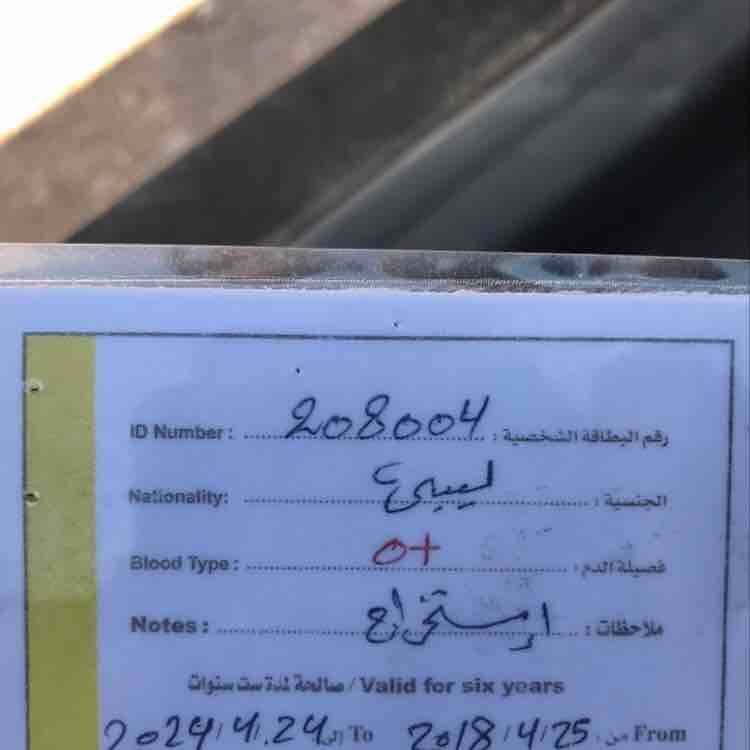 ID Number : 208004 رقم البطاقة الشخصية :
Nationality: ليبي الجنسية :
Blood Type : O+ فصيلة الدم :
Notes : إستخراج ملاحظات :
صالحة لمدة ست سنوات / Valid for six years
2024/4/24 إلى To 2018/4/25 من From